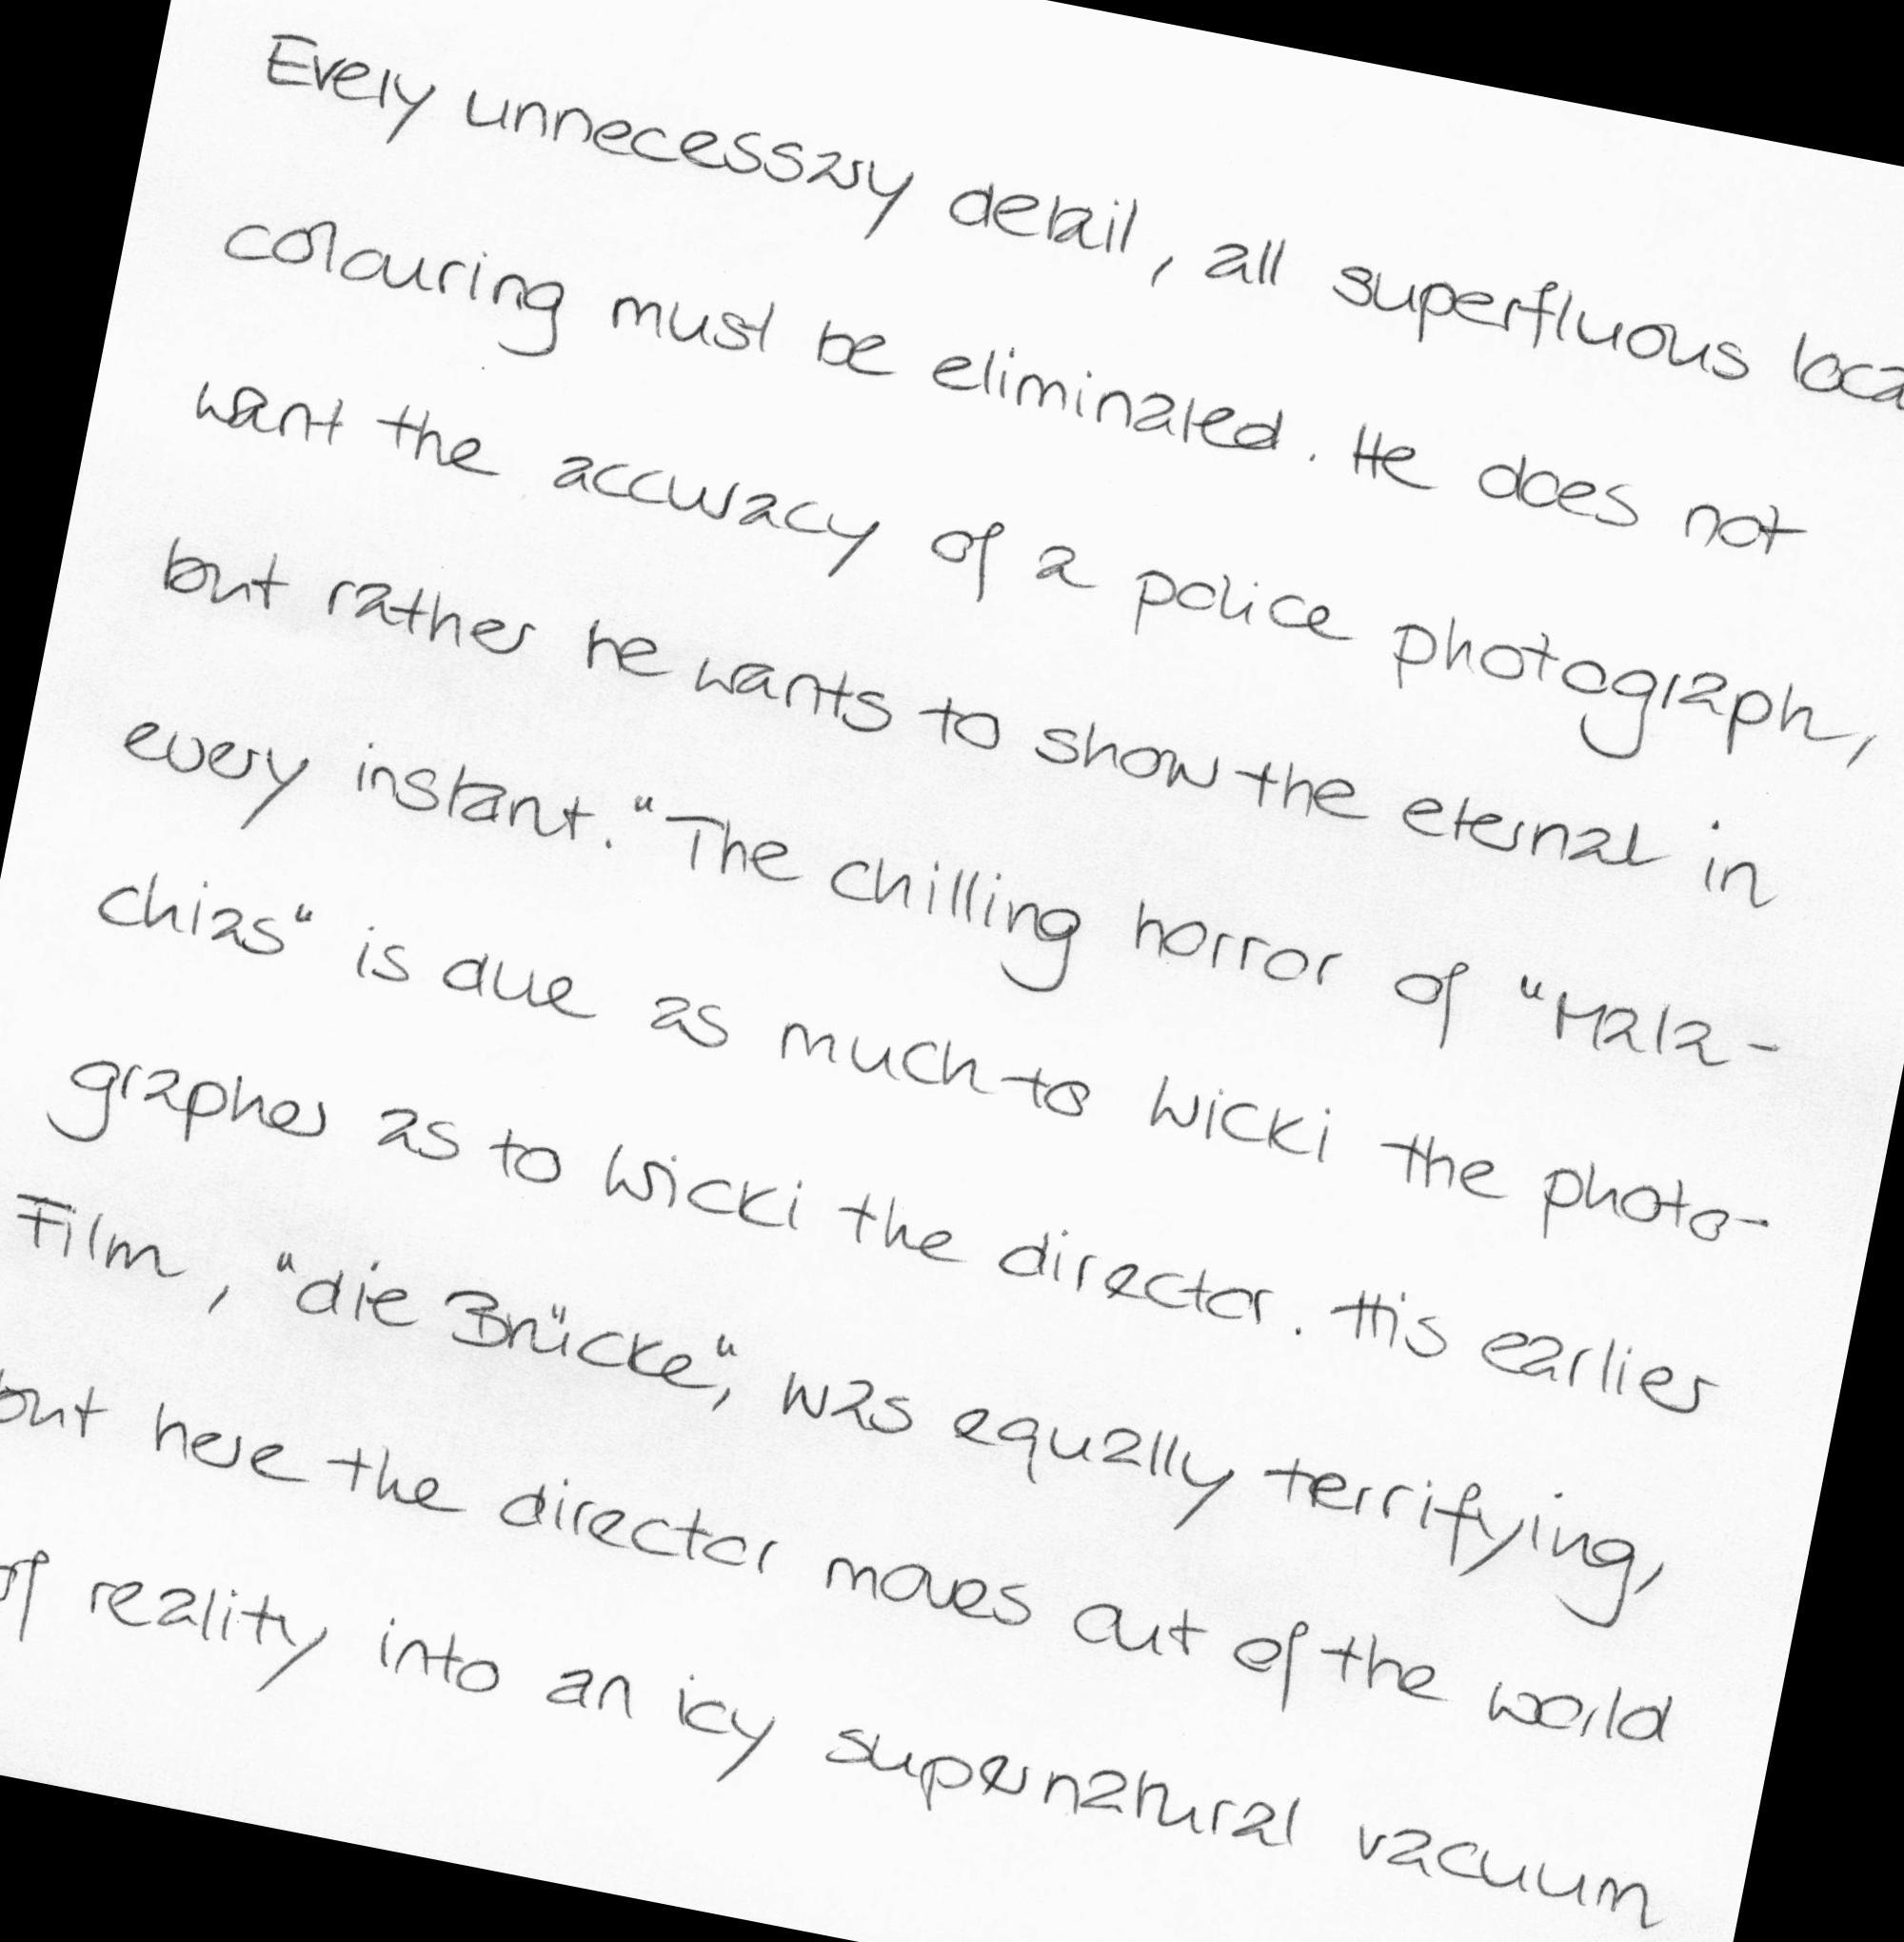 Every unnecessary detail, all superfluous loca
colouring must be eliminated. He does not
want the accuracy of a police photograph,
but rather he wants to show the eternal in
every instant." The chilling horror of "Mala-
chias" is due as much to Wicki the photo-
grapher as to Wicki the director. His earlier
Film, "die Brücke", was equally terrifying,
but here the director moves out of the world
of reality into an icy supernatural vacuum